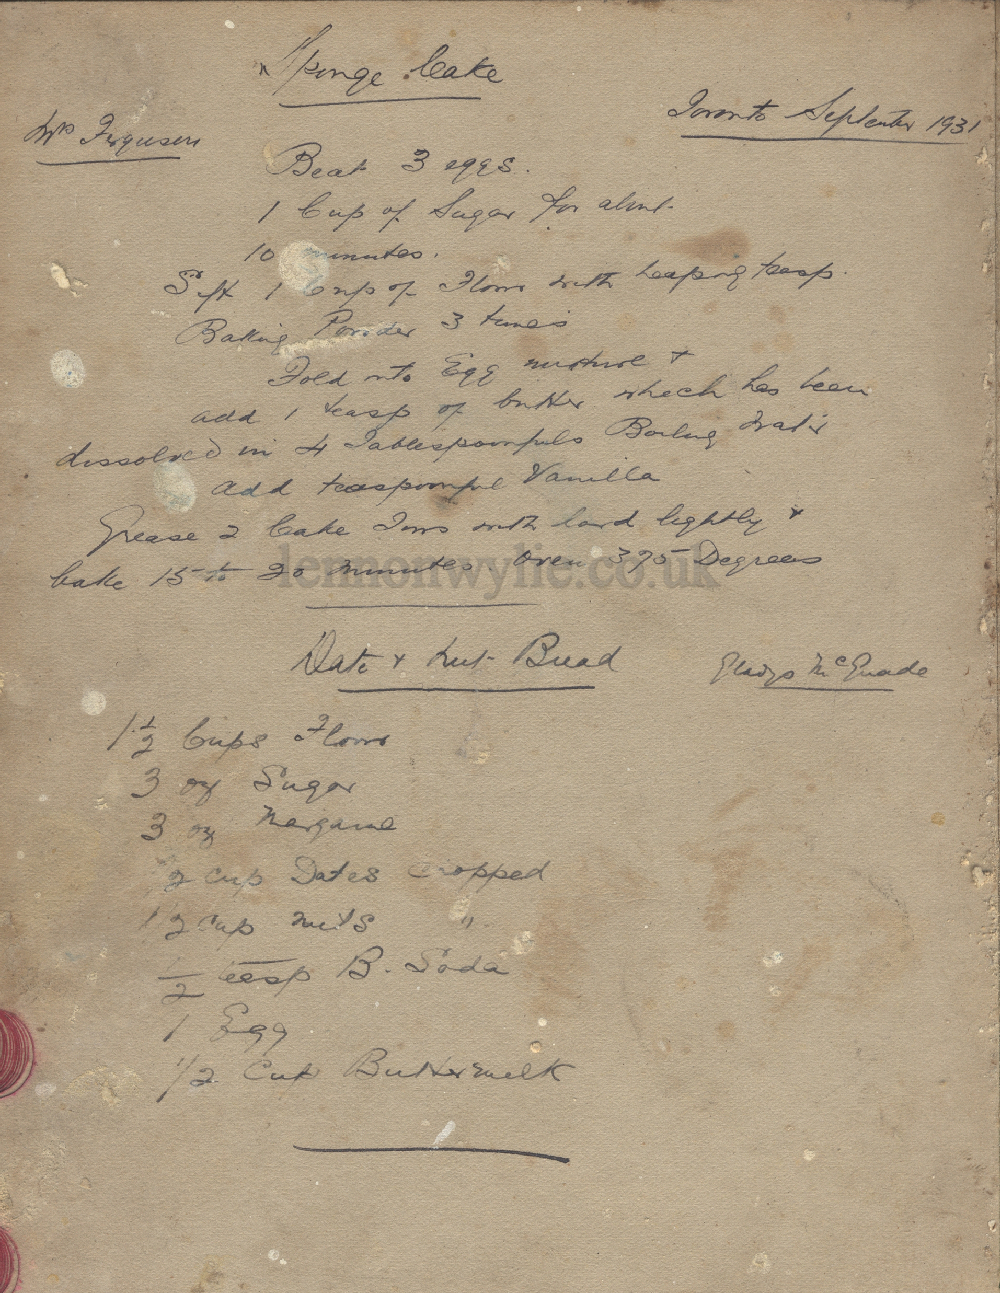 Sponge Cake
Mrs Fergusens
Toronto September 1931
Beat 3 eggs.
1 Cup of Sugar for about
10 minutes.
Sift 1 Cup of Flour with heaping teasp.
Baking Powder 3 times
Fold into Egg mixture +
add 1 teasp of butter which has been
dissolved in 4 Tablespoonfuls Boiling Water
add teaspoonful Vanilla
Grease 2 Cake Tins with lard lightly +
bake 15 to 20 minutes Oven 395 Degrees
lennonwylie.co.uk
Date + Nut Bread
Gladys McQuade
1 1/2 Cups Flour
3 oz Sugar
3 oz Margarine
2 cup Dates Chopped
1/2 cup nuts "
1/2 teasp B. Soda
1 Egg
1/2 Cup Buttermilk